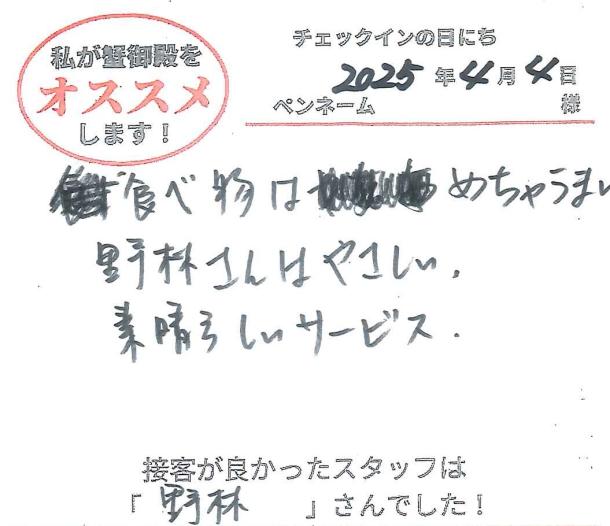 私が蟹御殿を
オススメ
します！
チェックインの日にち
2025年4月4日
ペンネーム 様
食べ物は めちゃうまい
野林さんはやさしい.
素晴らしいサービス.
接客が良かったスタッフは
「野林」さんでした！